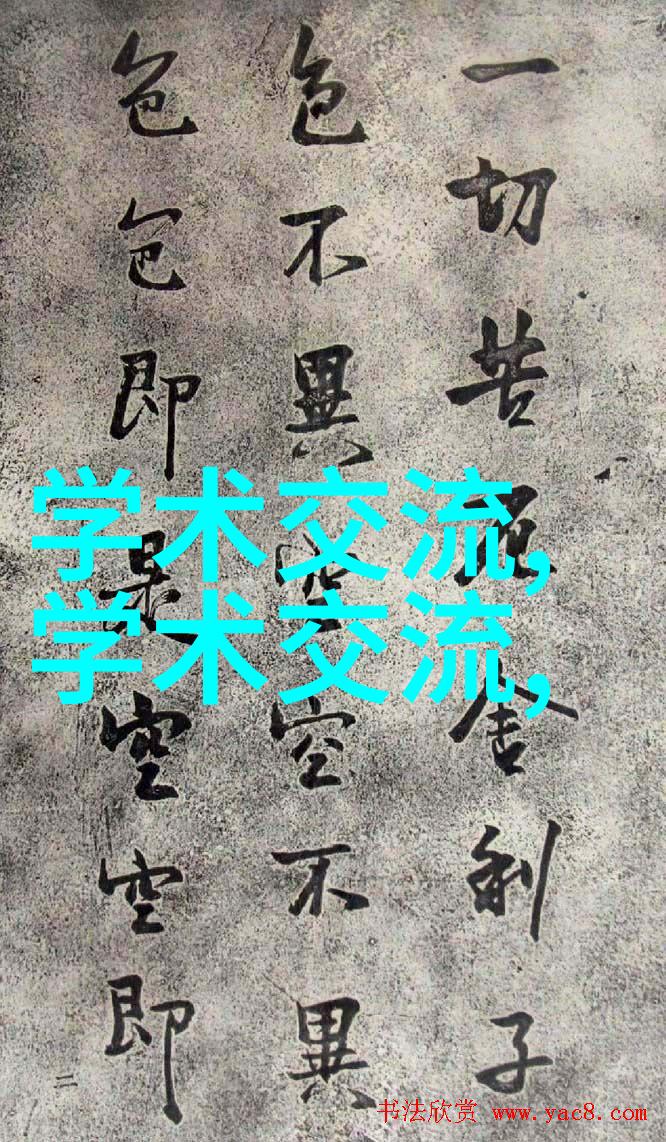 一切苦厄舍利子
色不異空空不異
色色即是空空即
二
学术交流,
学术交流,
书法欣赏 www.yac8.com